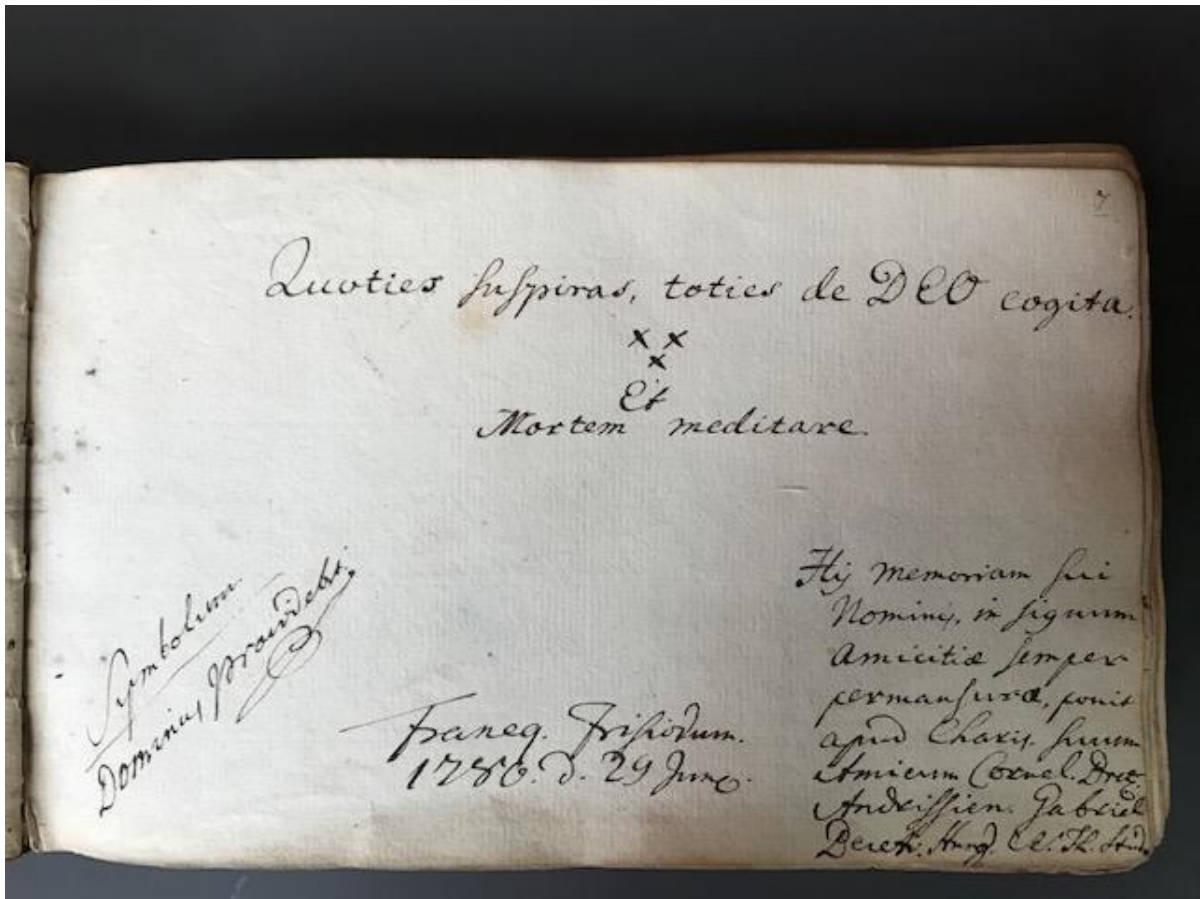 7
Quoties suspiras, toties de DEO cogita.
x x
x
Et
Mortem meditare.
Symbolum
Dominus providebit.
Franeq. Frisiorum.
1786. d. 29 Juny.
Hij memoriam sui
Nominis, in signum
Amicitiæ semper
permansuræ, ponit
apud Charis. suum
Amicum Cornel.
Gabriel
Hung. Th. Stud.